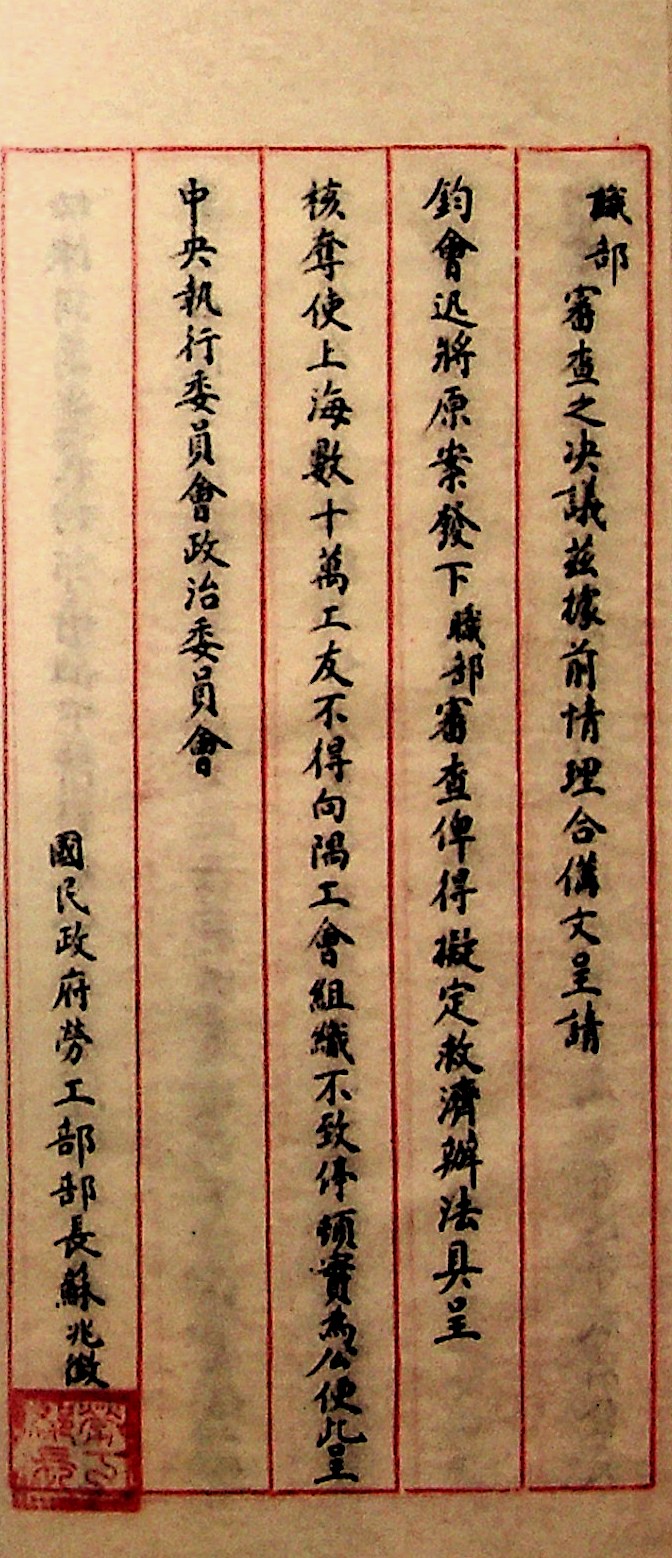 職部審查之决議茲據前情理合備文呈請
鈞會迅將原案發下職部審查俾得擬定救濟辦法具呈
核奪使上海數十萬工友不得向隅工會組織不致停頓實為公便此呈
中央執行委員會政治委員會
國民政府勞工部部長蘇兆徵